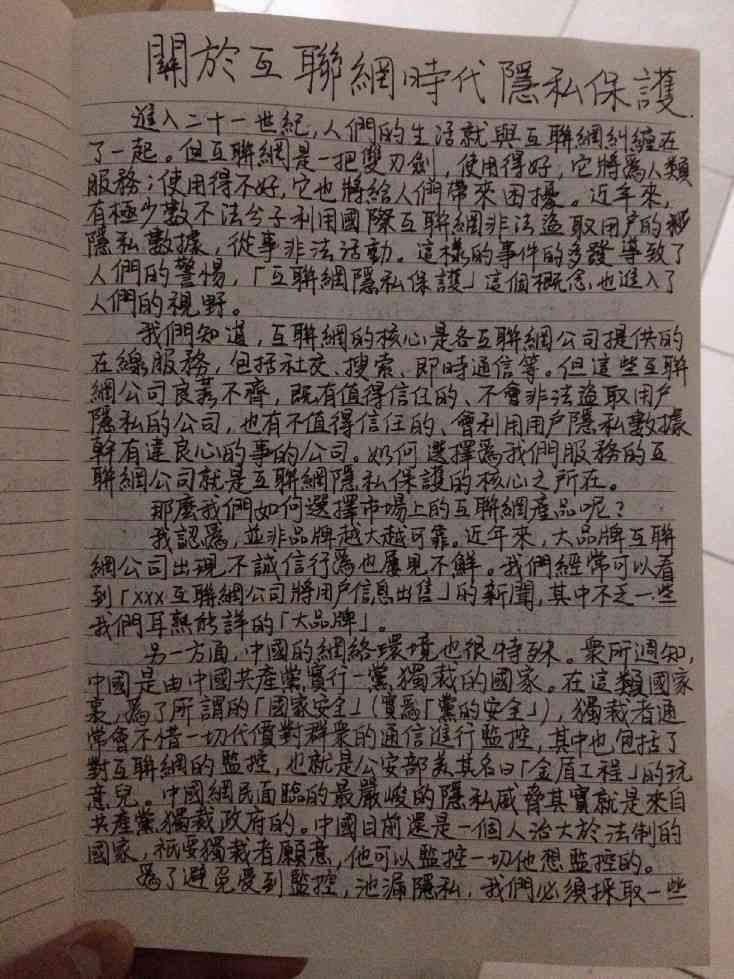 關於互聯網時代隱私保護
進入二十一世紀,人們的生活就與互聯網糾纏在
了一起。但互聯網是一把雙刃劍,使用得好,它將爲人類
服務;使用得不好,它也將給人們帶來困擾。近年來,
有極少數不法分子利用國際互聯網非法盜取用戶的
隱私數據,從事非法活動。這樣的事件的多發導致了
人們的警惕,「互聯網隱私保護」這個概念也進入了
人們的視野。
我們知道,互聯網的核心是各互聯網公司提供的
在線服務,包括社交、搜索、即時通信等。但這些互聯
網公司良莠不齊,既有值得信任的、不會非法盜取用戶
隱私的公司,也有不值得信任的、會利用用戶隱私數據
幹有違良心的事的公司。如何選擇爲我們服務的互
聯網公司就是互聯網隱私保護的核心之所在。
那麼我們如何選擇市場上的互聯網產品呢?
我認爲,並非品牌越大越可靠。近年來,大品牌互聯
網公司出現不誠信行爲也屢見不鮮。我們經常可以看
到「xxx互聯網公司將用戶信息出售」的新聞,其中不乏一些
我們耳熟能詳的「大品牌」。
另一方面,中國的網絡環境也很特殊。衆所週知,
中國是由中國共產黨實行一黨獨裁的國家。在這類國家
裏,爲了所謂的「國家安全」(實爲「黨的安全」),獨裁者通
常會不惜一切代價對群衆的通信進行監控,其中也包括了
對互聯網的監控,也就是公安部美其名曰「金盾工程」的玩
意兒。中國網民面臨的最嚴峻的隱私威脅其實就是來自
共產黨獨裁政府的。中國目前還是一個人治大於法制的
國家,祇要獨裁者願意,他可以監控一切他想監控的。
爲了避免受到監控,池漏隱私,我們必須採取一些